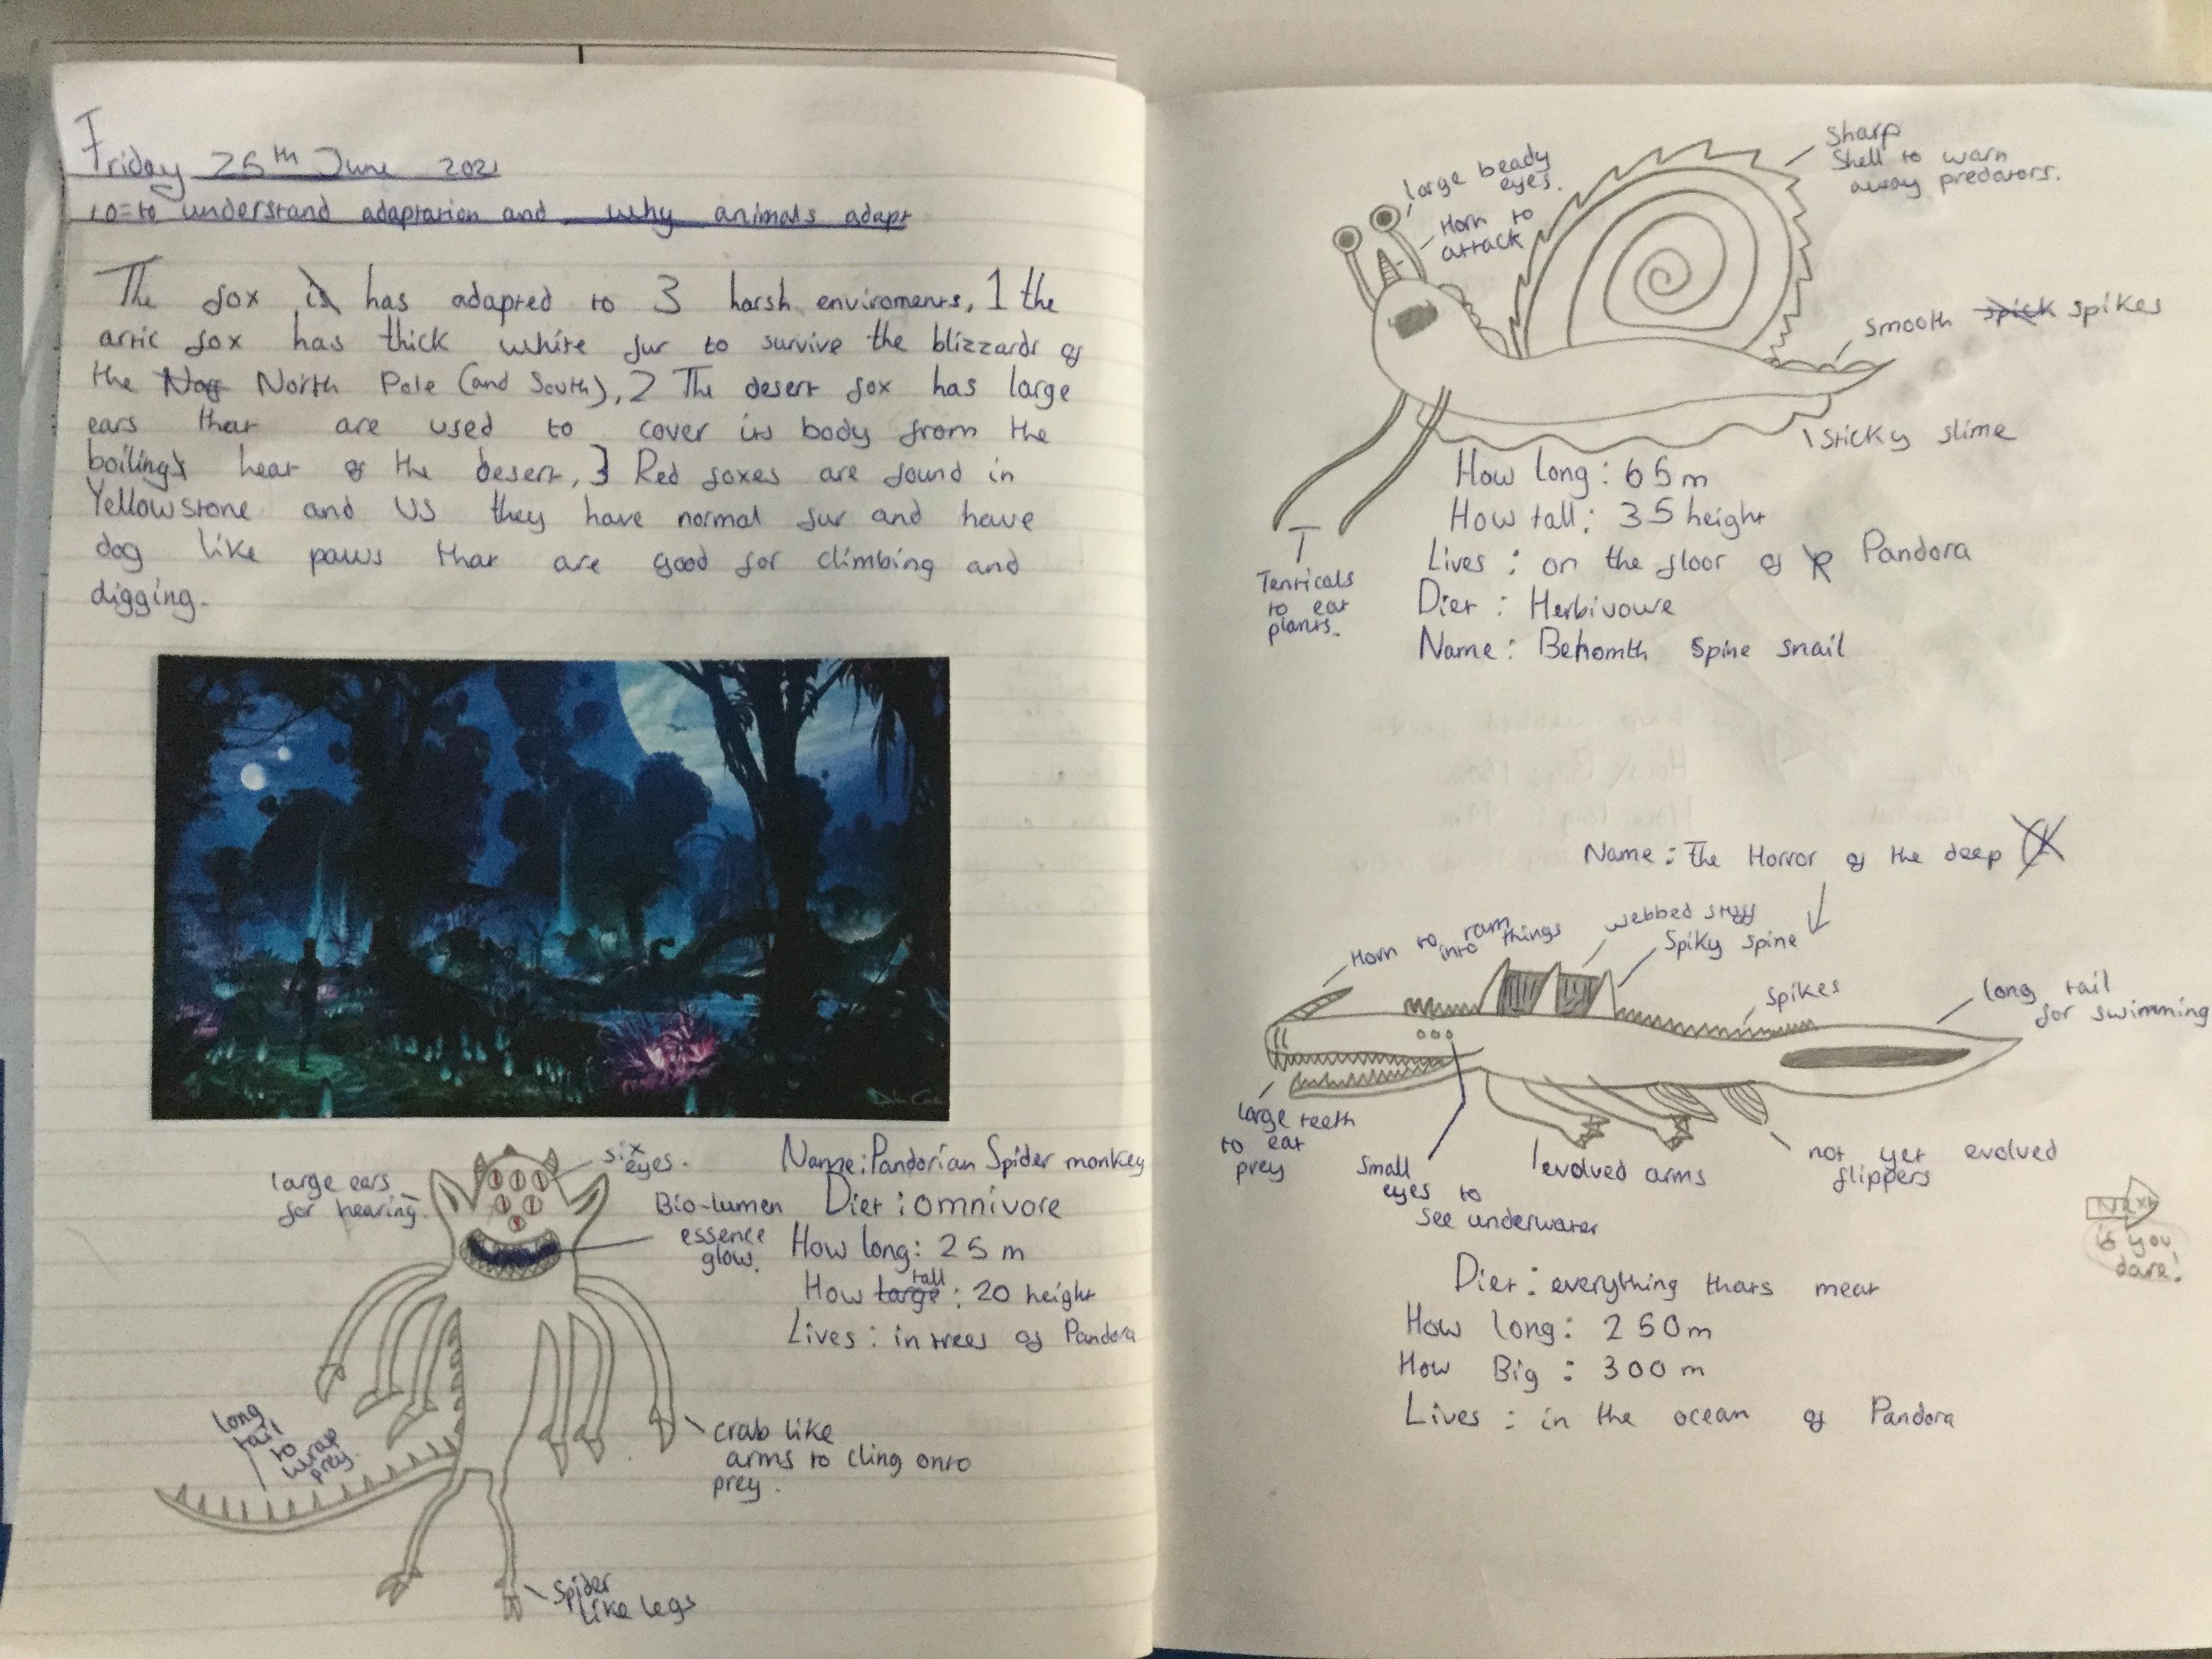 Friday 25th June 2021
LO=to understand adaptation and why animals adapt
The fox is has adapted to 3 harsh enviroments, 1 the
artic fox has thick white fur to survive the blizzards of
the North Pole (and South), 2 The desert fox has large
ears that are used to cover its body from the
boiling heat of the desert, 3 Red foxes are found in
Yellowstone and US they have normal fur and have
dog like paws that are good for climbing and
digging.
six
eyes.
large ears
for hearing.
Bio-lumen
essence
glow.
Name: Pandorian Spider monkey
Diet: omnivore
How long: 25 m
How large tall: 20 height
Lives: in trees of Pandora
long
tail
to
wrap
prey.
crab like
arms to cling onto
prey.
Spider
like legs
large beady
eyes.
Horn to
attack
Sharp
Shell to warn
away predators.
smooth spick spikes
sticky slime
Tenticals
to eat
plants.
How long: 65m
How tall: 35 height
Lives: on the floor of Pandora
Diet: Herbivowe
Name: Behomth Spine snail
Name: The Horror of the deep
Horn to ram
into things
webbed stuff
Spiky spine
spikes
long tail
for swimming
large teeth
to eat
prey
Small
eyes to
see underwater
evolved arms
not yet evolved
flippers
Next
if you
dare!
Diet: everything thats meat
How long: 250m
How Big: 300m
Lives: in the ocean of Pandora